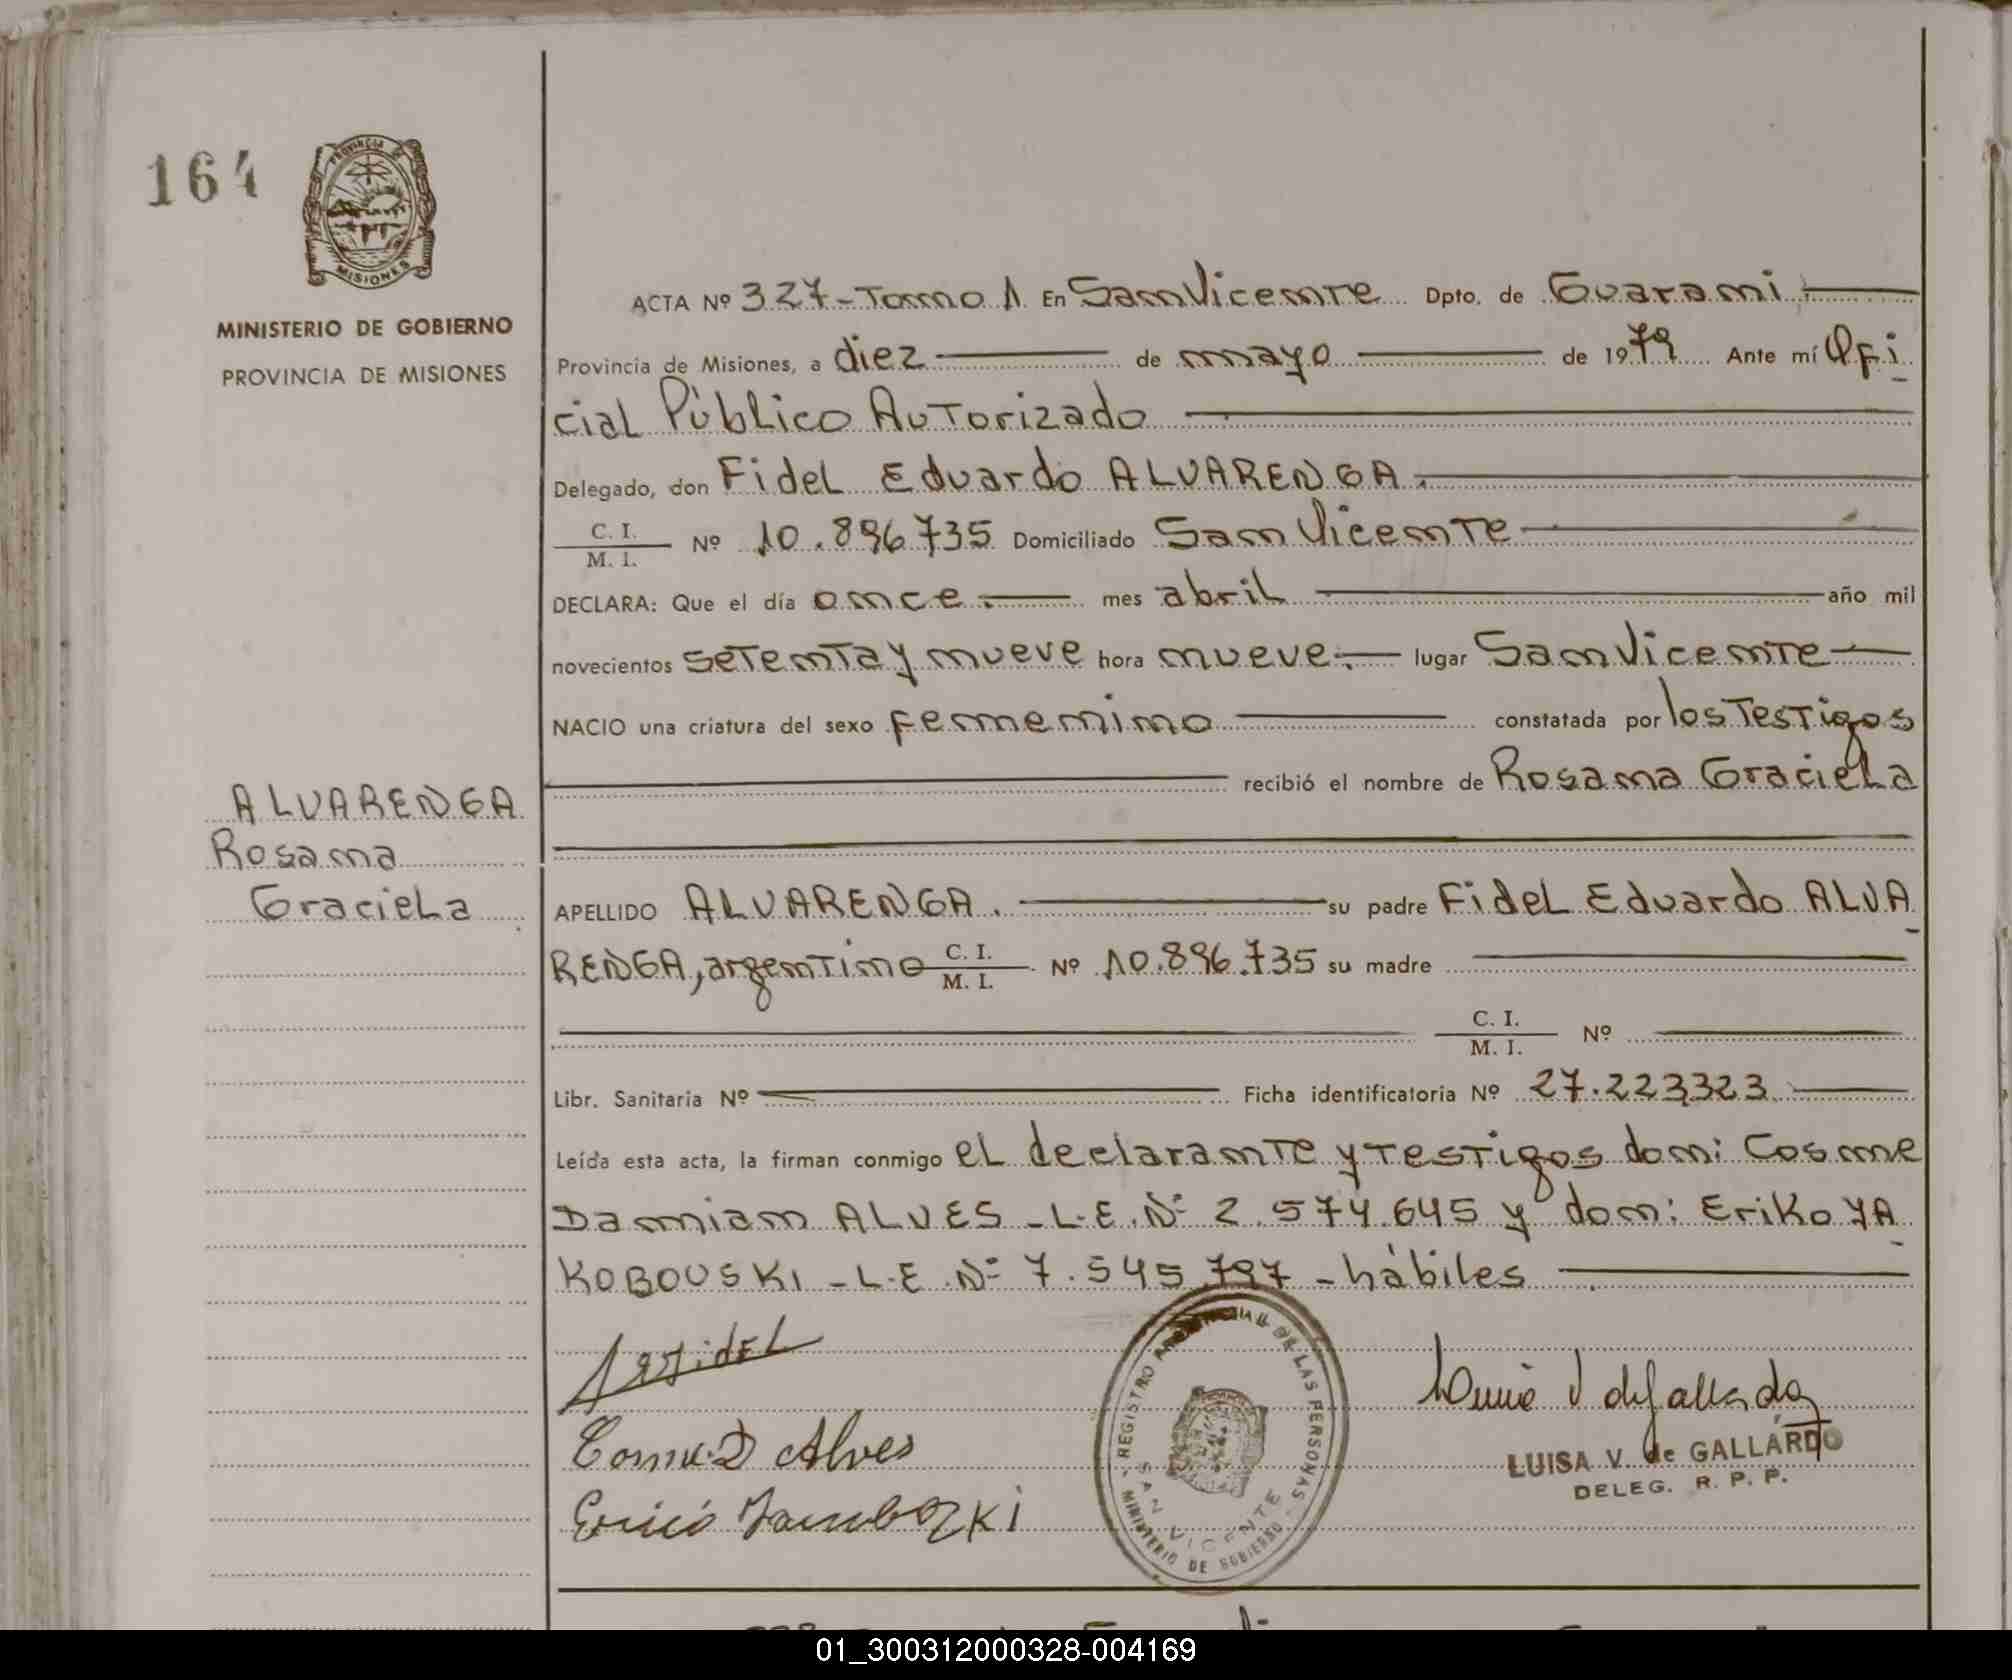 164
PROVINCIA DE
MISIONES
MINISTERIO DE GOBIERNO
PROVINCIA DE MISIONES
ACTA Nº 327-Tomo 1 En San Vicente Dpto. de Guarani.
Provincia de Misiones, a diez de mayo de 1979 Ante mí Ofi
cial Público Autorizado
Delegado, don Fidel Eduardo ALVARENGA.
C. I.
M. I. Nº 10.896.735 Domiciliado San Vicente
DECLARA: Que el día once. mes abril año mil
novecientos setenta y nueve hora nueve. lugar San Vicente
NACIO una criatura del sexo femenino constatada por los Testigos
recibió el nombre de Rosana Graciela
ALVARENGA
Rosana
Graciela
APELLIDO ALVARENGA. su padre Fidel Eduardo ALVA
RENGA, argentino C. I. M. I. Nº 10.896.735 su madre
C. I.
M. I. Nº
Libr. Sanitaria Nº Ficha identificatoria Nº 27.223323
Leída esta acta, la firman conmigo el declarante y Testigos don: Cosme
Damian ALVES - L.E. Nº 2.574.645 y don: Eriko YA
KOBOUSKI - L.E Nº 7.545.797 - hábiles
Cosme D Alves
REGISTRO PROVINCIAL DE LAS PERSONAS
SAN VICENTE
MINISTERIO DE GOBIERNO
LUISA V. de GALLARDO
DELEG. R. P. P.
01_300312000328-004169